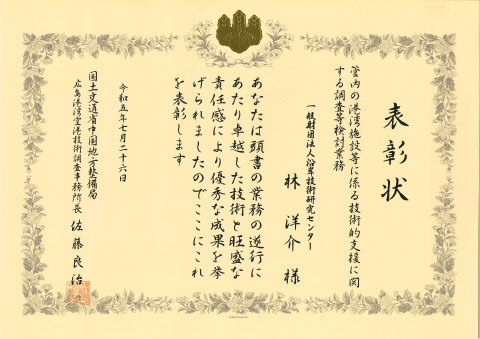 表彰状
管内の港湾施設等に係る技術的支援に関
する調査等検討業務
一般財団法人沿岸技術研究センター
林 洋介 様
あなたは頭書の業務の遂行に
あたり卓越した技術と旺盛な
責任感により優秀な成果を挙
げられましたのでここにこれ
を表彰します
令和五年七月二十六日
国土交通省中国地方整備局
広島港湾空港技術調査事務所長 佐藤良治